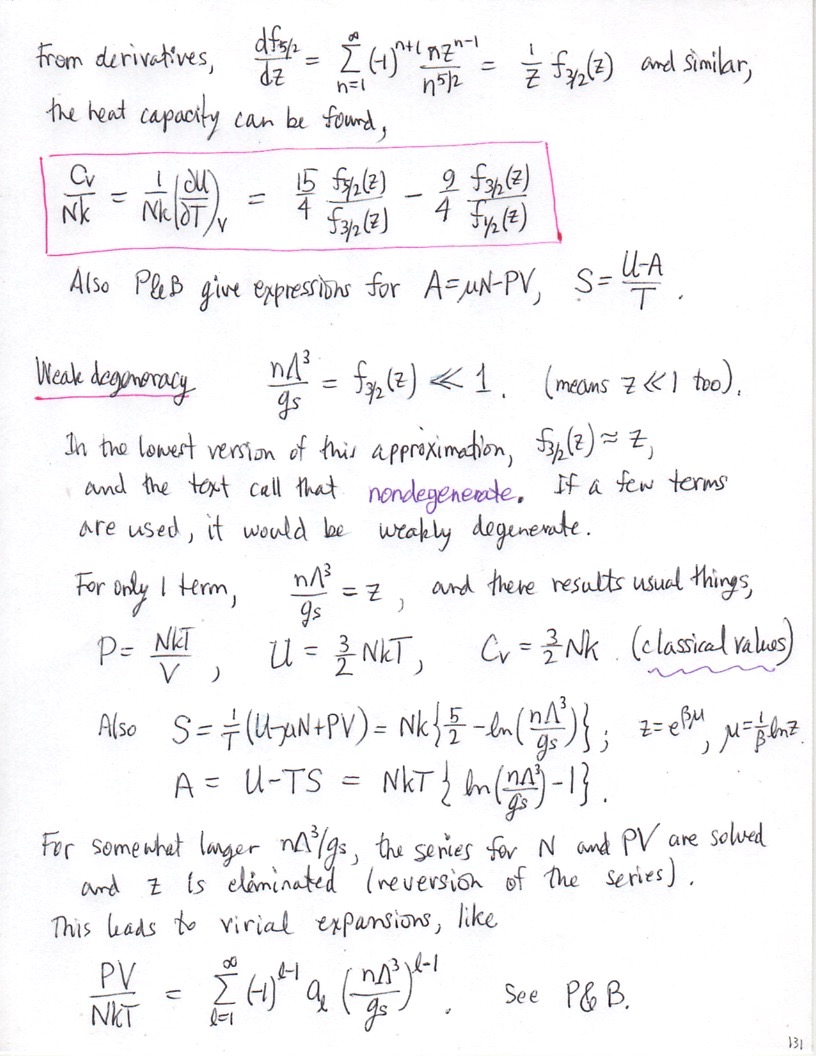 From derivatives, df₅/₂/dz = Σ_{n=1}^{∞} (-1)^{n+1} nz^{n-1}/n^{5/2} = 1/z f₃/₂(z) and similar,
the heat capacity can be found,
Cv/Nk = 1/Nk (∂U/∂T)_V = 15/4 f₅/₂(z)/f₃/₂(z) - 9/4 f₃/₂(z)/f₁/₂(z)
Also P&B give expressions for A=μN-PV, S= (U-A)/T .
Weak degeneracy nΛ³/gs = f₃/₂(z) ≪ 1. (means z≪1 too).
In the lowest version of this approximation, f₃/₂(z) ≈ z,
and the text call that nondegenerate. If a few terms
are used, it would be weakly degenerate.
For only 1 term, nΛ³/gs = z, and there results usual things,
P = NkT/V, U = 3/2 NkT, Cv = 3/2 Nk. (classical values)
Also S = 1/T (U-μN+PV) = Nk{5/2 - ln(nΛ³/gs)}; z=e^{βμ}, μ=1/β lnz.
A = U-TS = NkT{ln(nΛ³/gs)-1}.
For somewhat larger nΛ³/gs, the series for N and PV are solved
and z is eliminated (reversion of the series).
This leads to virial expansions, like
PV/NkT = Σ_{l=1}^{∞} (-1)^{l-1} a_l (nΛ³/gs)^{l-1}. See P&B.
131